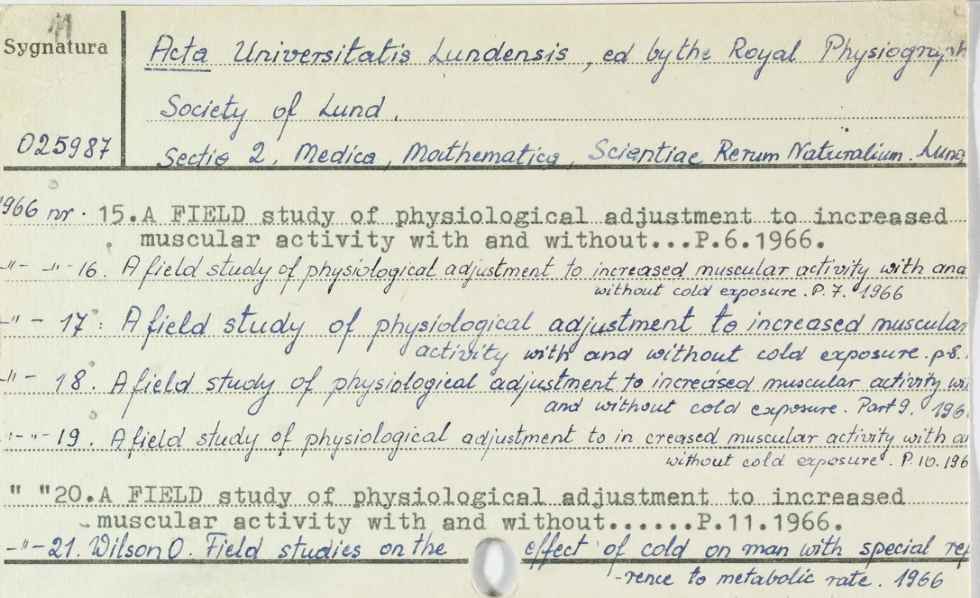 Sygnatura
Acta Universitatis Lundensis, ed by the Royal Physiograph
Society of Lund.
025987
Sectio 2. Medica, Mathematica, Scientiae Rerum Naturalium. Lund
1966 nr. 15. A FIELD study of physiological adjustment to increased
muscular activity with and without...P.6.1966.
-"- -"- 16. A field study of physiological adjustment to increased muscular activity with and
without cold exposure. P. 7. 1966
-"- 17. A field study of physiological adjustment to increased muscular
activity with and without cold exposure. p.8.
-"- 18. A field study of physiological adjustment to increased muscular activity wi
and without cold exposure. Part 9. 196
-"- 19. A field study of physiological adjustment to in creased muscular activity with a
without cold exposure. P. 10. 196
" "20. A FIELD study of physiological adjustment to increased
muscular activity with and without......P.11.1966.
-"- 21. Wilson O. Field studies on the effect of cold on man with special ref
-rence to metabolic rate. 1966